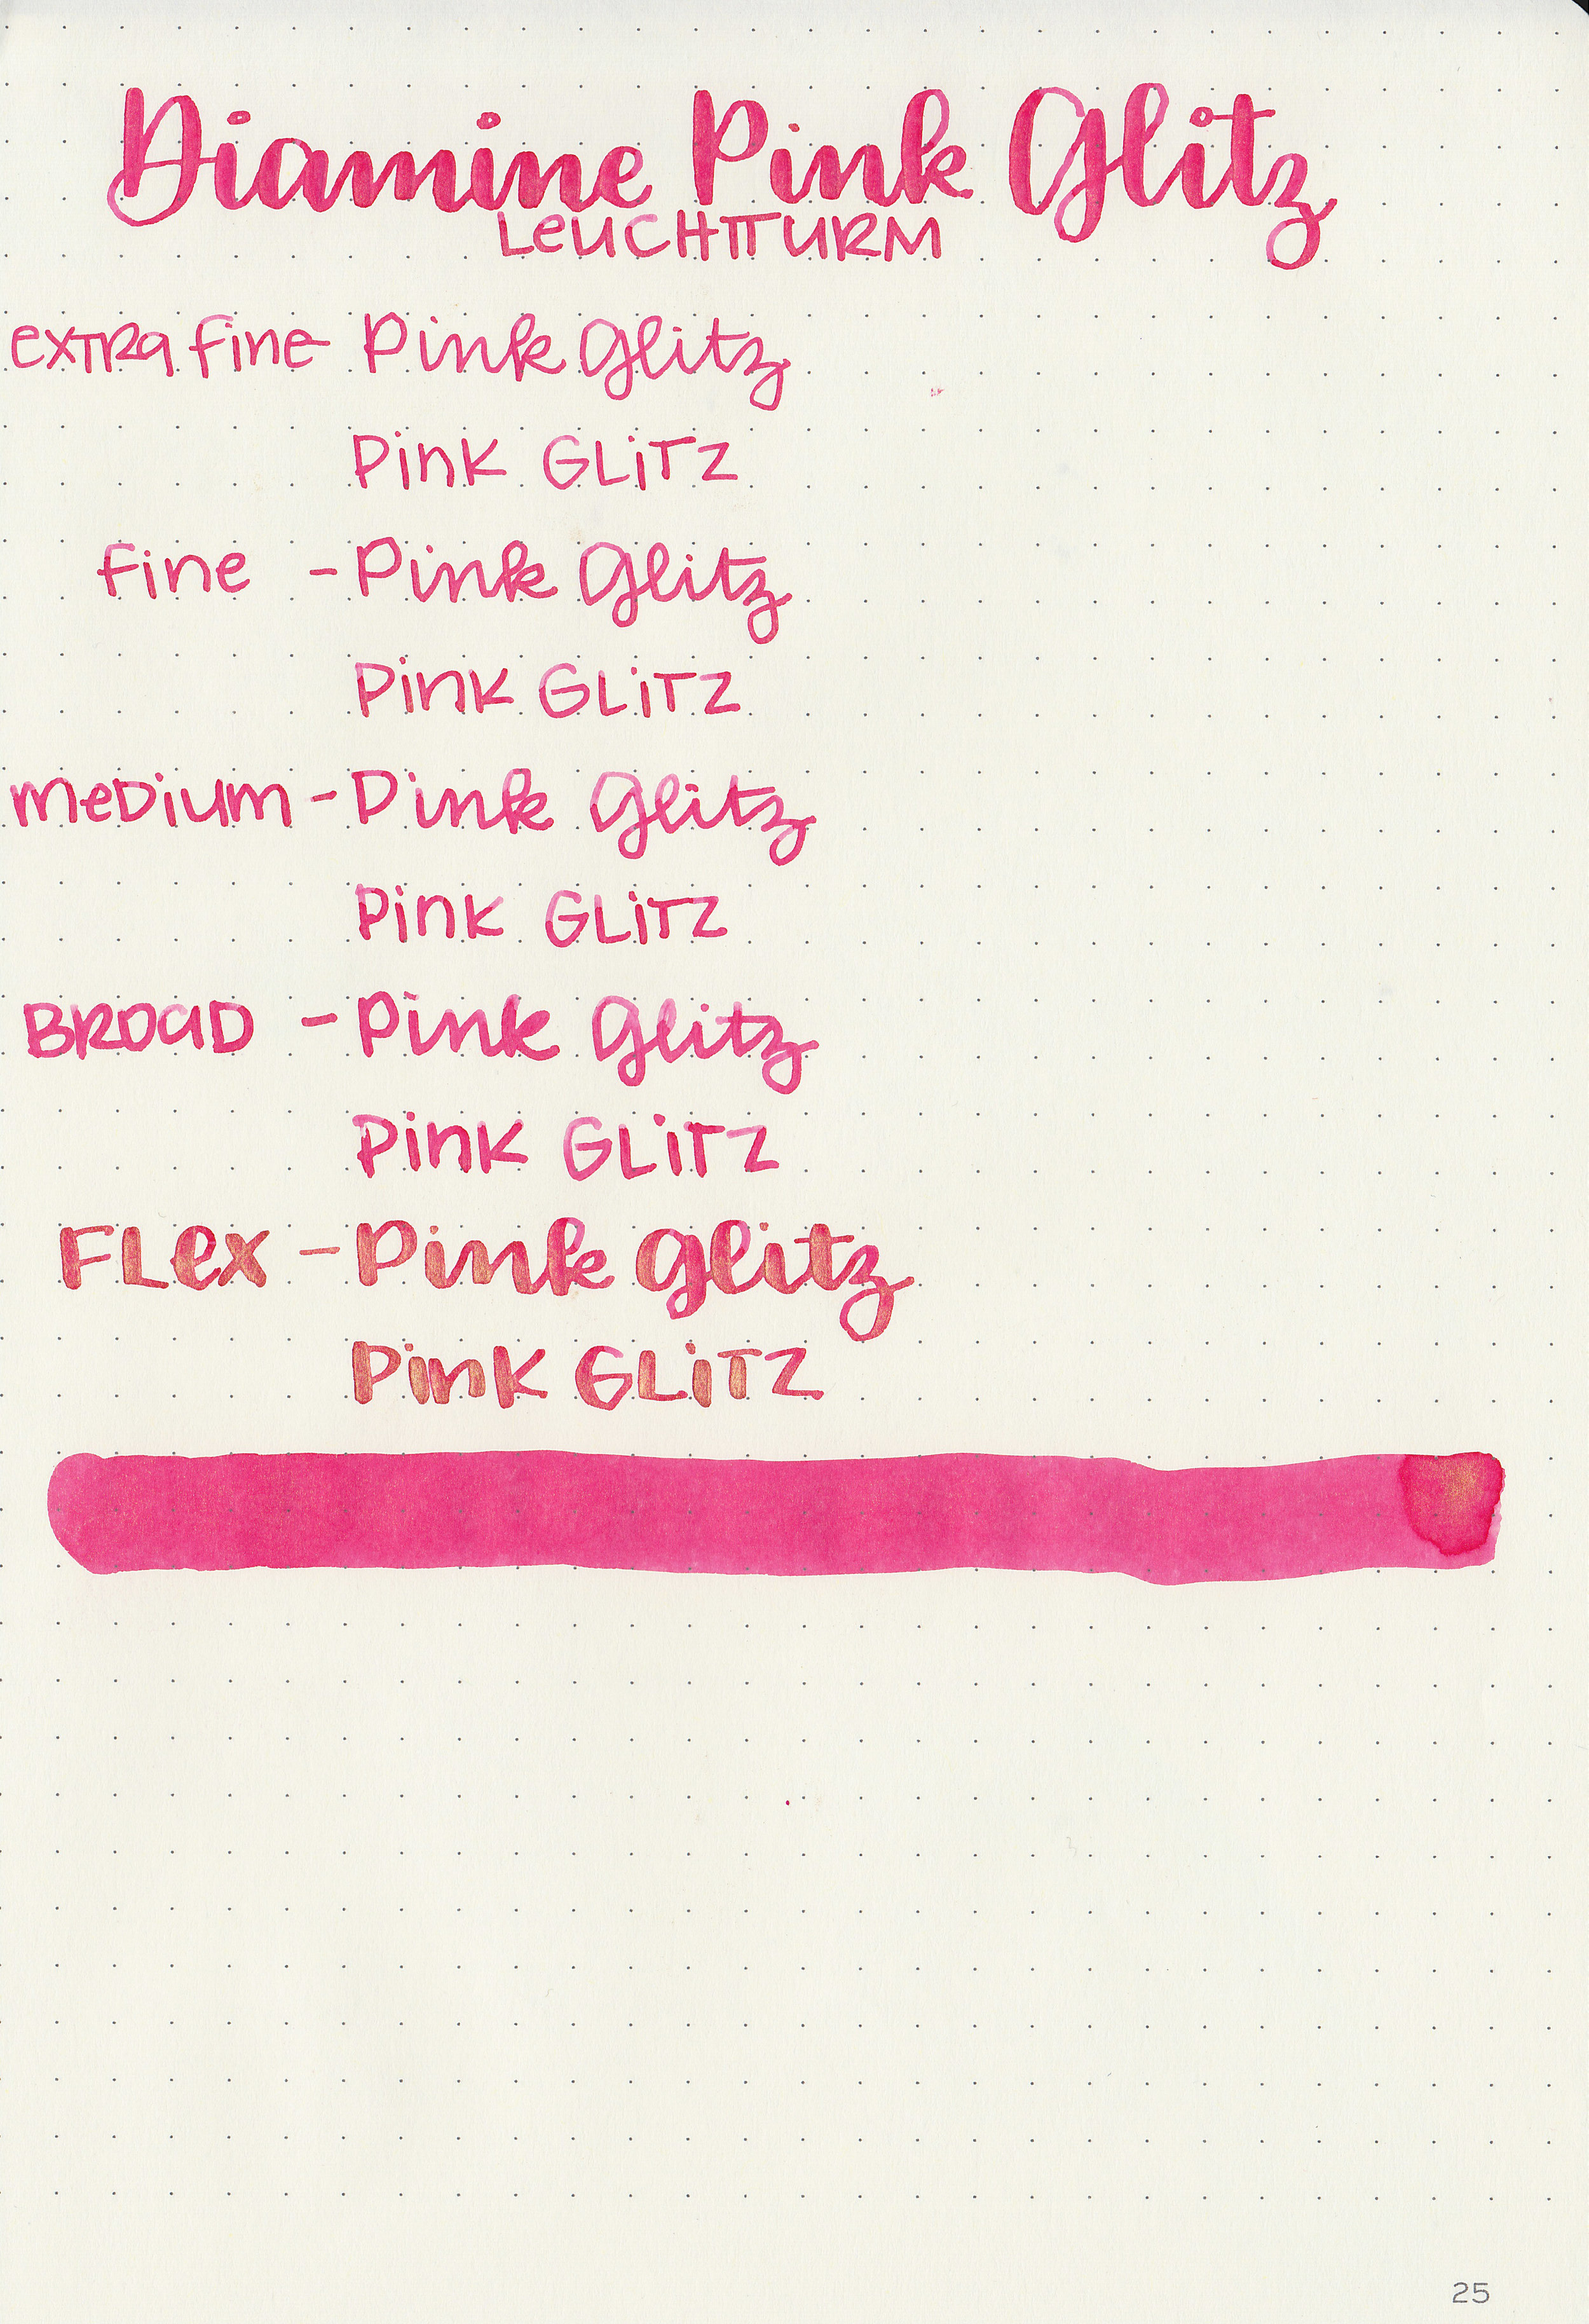 Diamine Pink Glitz
LeUCHTTURM
exTRa fine - Pink Glitz
Pink GLiTZ
fine - Pink Glitz
Pink GLiTZ
meDium - Pink Glitz
Pink GLiTZ
BROaD - Pink Glitz
Pink GLiTZ
FLex - Pink Glitz
Pink GLiTZ
25